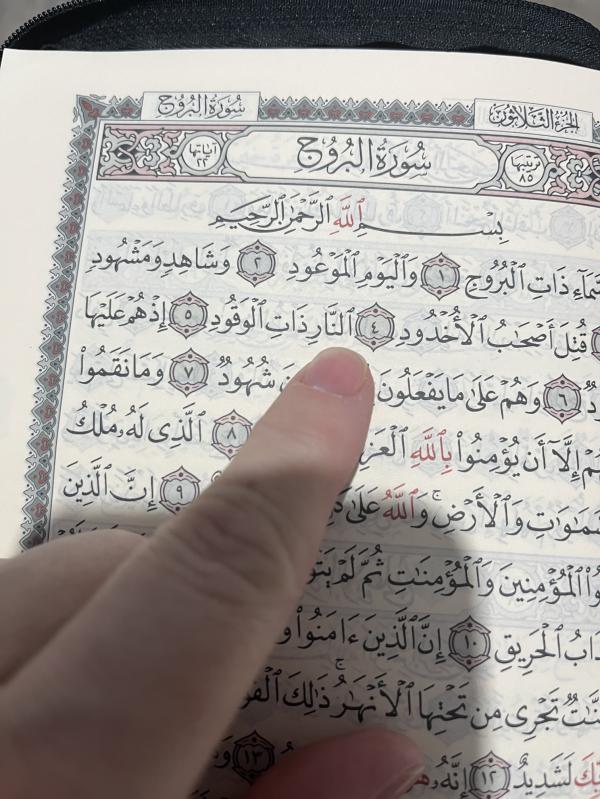 الجزء الثلاثون
سورة البروج
ترتيبها ٨٥
سُورَةُ الْبُرُوجِ
آياتها ٢٢
بِسْمِ ٱللَّهِ ٱلرَّحْمَٰنِ ٱلرَّحِيمِ
ذَاتِ ٱلْبُرُوجِ ١ وَٱلْيَوْمِ ٱلْمَوْعُودِ ٢ وَشَاهِدٍ وَمَشْهُودٍ
قُتِلَ أَصْحَٰبُ ٱلْأُخْدُودِ ٤ ٱلنَّارِ ذَاتِ ٱلْوَقُودِ ٥ إِذْ هُمْ عَلَيْهَا
٦ وَهُمْ عَلَىٰ مَا يَفْعَلُونَ شُهُودٌ ٧ وَمَا نَقَمُوا۟
إِلَّآ أَن يُؤْمِنُوا۟ بِٱللَّهِ ٨ ٱلَّذِى لَهُۥ مُلْكُ
وَٱلْأَرْضِ ۚ وَٱللَّهُ عَلَىٰ ٩ إِنَّ ٱلَّذِينَ
ٱلْمُؤْمِنِينَ وَٱلْمُؤْمِنَٰتِ ثُمَّ لَمْ
ٱلْحَرِيقِ ١٠ إِنَّ ٱلَّذِينَ ءَامَنُوا۟
تَجْرِى مِن تَحْتِهَا ٱلْأَنْهَٰرُ ۚ ذَٰلِكَ
لَشَدِيدٌ ١٢ إِنَّهُۥ ١٣